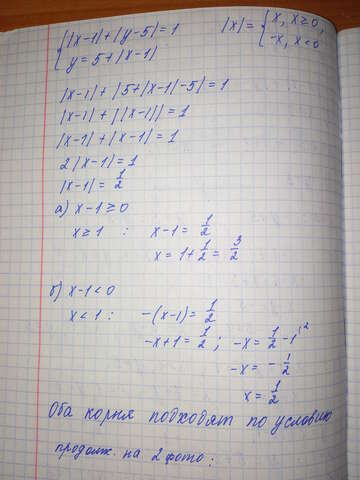 { |x-1|+|y-5|=1 |x|= { x, x≥0,
{ y=5+|x-1| { -x, x<0
|x-1|+|5+|x-1|-5|=1
|x-1|+||x-1||=1
|x-1|+|x-1|=1
2|x-1|=1
|x-1|=1/2
а) x-1≥0
x≥1 : x-1=1/2
x=1+1/2=3/2
б) x-1<0
x<1 : -(x-1)=1/2
-x+1=1/2 ; -x=1/2-1\2
-x=-1/2
x=1/2
Оба корня подходят по условию
продолж. на 2 фото: